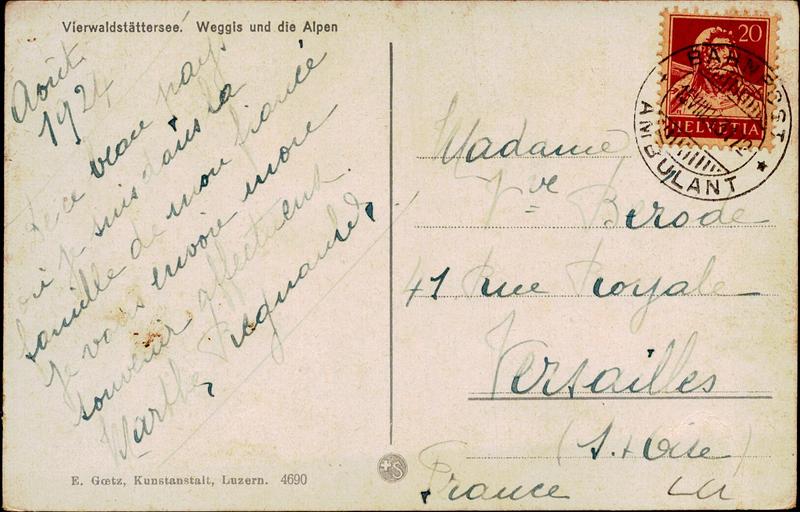 Vierwaldstättersee. Weggis und die Alpen
Août
1924
De ce beau pays
où je suis dans la
famille de mon fiancé
je vous envoie mon
souvenir affectueux
Marthe
E. Gœtz, Kunstanstalt, Luzern. 4690
20
HELVETIA
BAHNPOST
AMBULANT
Madame
Vve Berode
41 Rue Royale
Versailles
(S. & Oise)
France